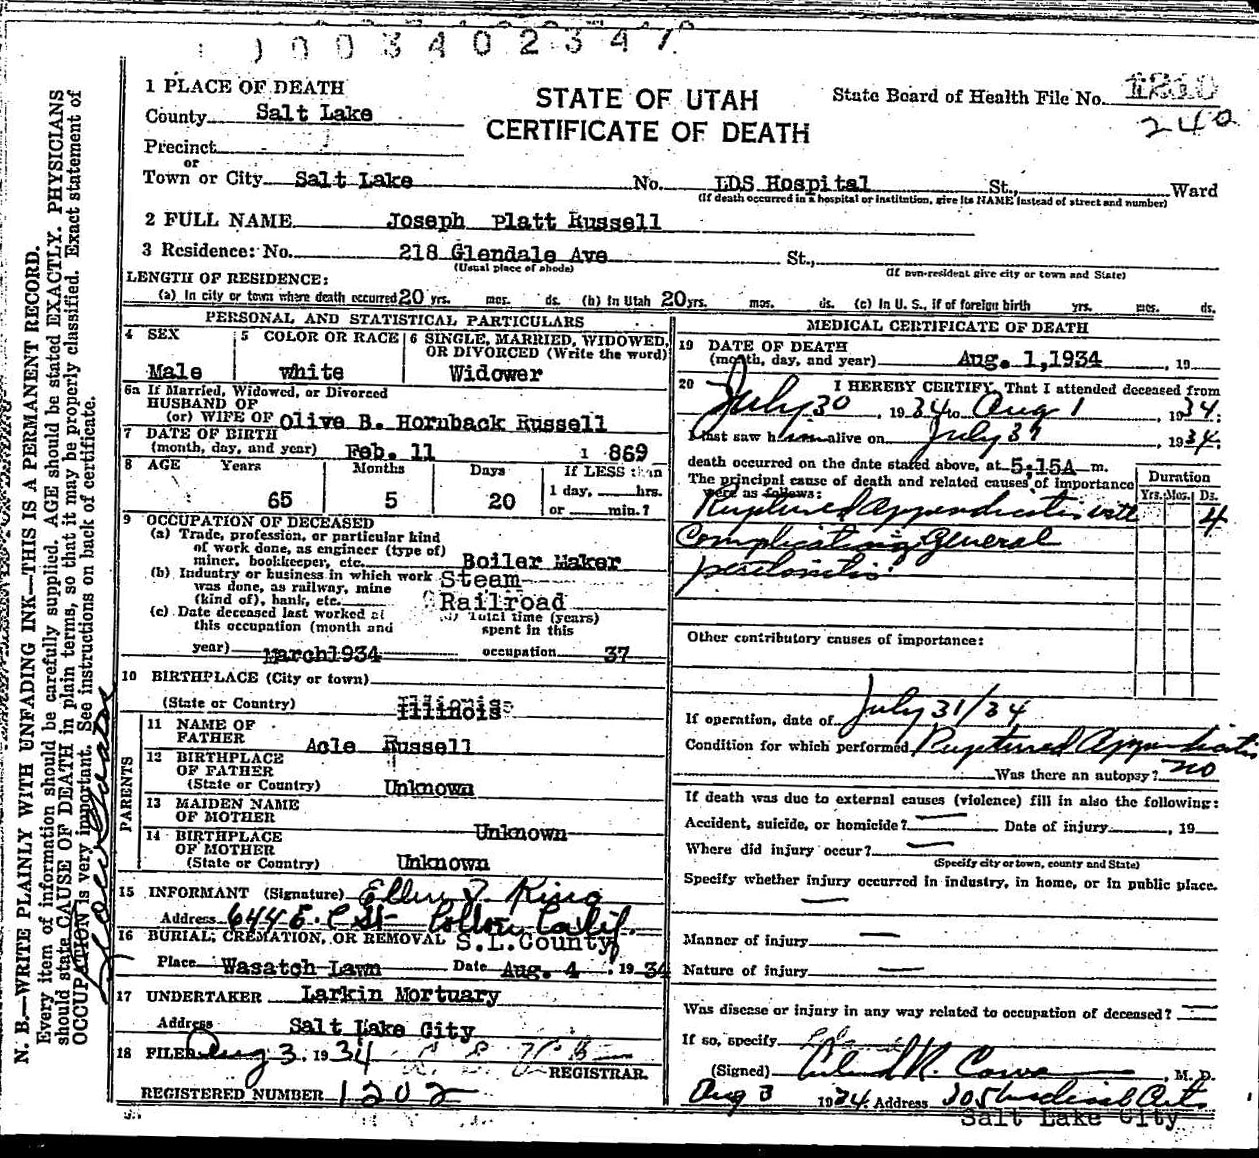 1003402347
1 PLACE OF DEATH
STATE OF UTAH
CERTIFICATE OF DEATH
State Board of Health File No. 1810
240
County Salt Lake
Precinct
or
Town or City Salt Lake No. LDS Hospital St., Ward
(If death occurred in a hospital or institution, give its NAME instead of street and number)
2 FULL NAME Joseph Platt Russell
3 Residence: No. 218 Glendale Ave St.,
(Usual place of abode) (If non-resident give city or town and State)
LENGTH OF RESIDENCE:
(a) In city or town where death occurred 20 yrs. mos. ds. (b) In Utah 20 yrs. mos. ds. (c) In U. S., if of foreign birth yrs. mos. ds.
PERSONAL AND STATISTICAL PARTICULARS
4 SEX 5 COLOR OR RACE 6 SINGLE, MARRIED, WIDOWED, OR DIVORCED (Write the word)
Male white Widower
6a If Married, Widowed, or Divorced
HUSBAND OF
(or) WIFE OF Olive B. Hornback Russell
7 DATE OF BIRTH
(month, day, and year) Feb. 11 1 869
8 AGE Years Months Days If LESS than
1 day, hrs.
65 5 20 or min.?
9 OCCUPATION OF DECEASED
(a) Trade, profession, or particular kind
of work done, as engineer (type of)
miner, bookkeeper, etc. Boiler Maker
(b) Industry or business in which work Steam
was done, as railway, mine
(kind of), bank, etc. Railroad
(c) Date deceased last worked at (d) Total time (years)
this occupation (month and spent in this
year) March1934 occupation 37
10 BIRTHPLACE (City or town)
(State or Country) Illinois
PARENTS
11 NAME OF
FATHER Acle Russell
12 BIRTHPLACE
OF FATHER
(State or Country) Unknown
13 MAIDEN NAME
OF MOTHER Unknown
14 BIRTHPLACE
OF MOTHER
(State or Country) Unknown
15 INFORMANT (Signature) Ellen King
Address 644 E. C St Colton Calif.
16 BURIAL, CREMATION, OR REMOVAL S.L.County
Place Wasatch Lawn Date Aug. 4 . 19 34
17 UNDERTAKER Larkin Mortuary
Address Salt Lake City
18 FILED Aug 3, 19 34
REGISTRAR.
REGISTERED NUMBER 1202
MEDICAL CERTIFICATE OF DEATH
19 DATE OF DEATH
(month, day, and year) Aug. 1,1934 , 19
20 I HEREBY CERTIFY, That I attended deceased from
July 30 , 19 34 to Aug 1 , 19 34.
I last saw him alive on July 31 , 19 34.
death occurred on the date stated above, at 5:15A m.
The principal cause of death and related causes of importance
were as follows:
Duration
Yrs. Mos. Ds.
Ruptured Appendicitis with 4
Complicating General
peritonitis
Other contributory causes of importance:
If operation, date of July 31/34
Condition for which performed Ruptured Appendicitis
Was there an autopsy? no
If death was due to external causes (violence) fill in also the following:
Accident, suicide, or homicide? Date of injury , 19
Where did injury occur?
(Specify city or town, county and State)
Specify whether injury occurred in industry, in home, or in public place.
Manner of injury
Nature of injury
Was disease or injury in any way related to occupation of deceased?
If so, specify
(Signed) M. D.
Aug 3 1934 Address 305 Medical Arts
Salt Lake City
N. B.—WRITE PLAINLY WITH UNFADING INK—THIS IS A PERMANENT RECORD.
Every item of information should be carefully supplied. AGE should be stated EXACTLY. PHYSICIANS
should state CAUSE OF DEATH in plain terms, so that it may be properly classified. Exact statement of
OCCUPATION is very important. See instructions on back of certificate.